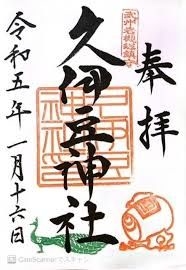 奉拝
武州岩槻総鎮守
久伊豆神社
令和五年一月十六日
CamScannerでスキャン